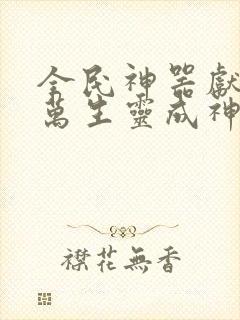 全民神器獻
萬生靈成神
襟花無香